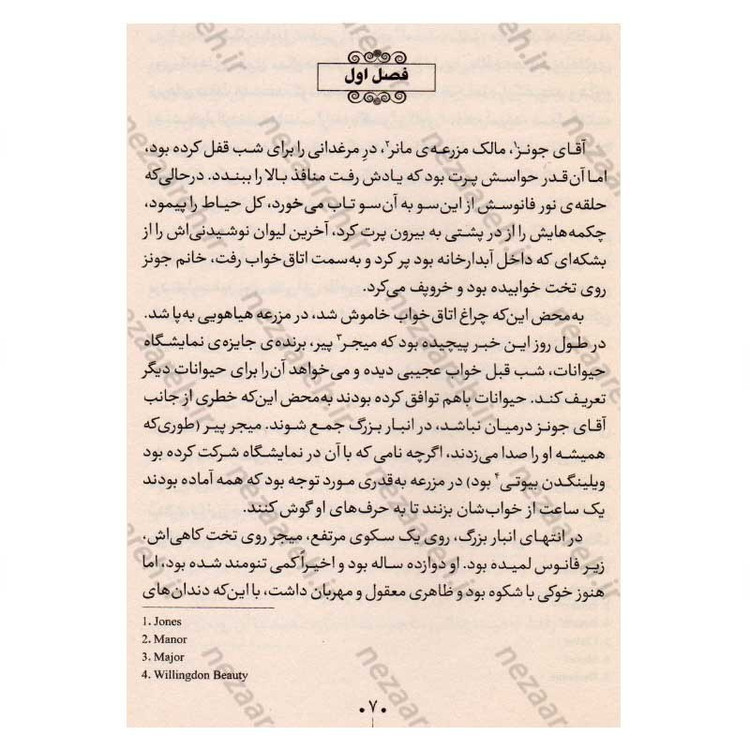 فصل اول
آقای جونز۱، مالک مزرعه‌ی مانر۲، درِ مرغدانی را برای شب قفل کرده بود،
اما آن‌قدر حواسش پرت بود که یادش رفت منافذ بالا را ببندد. درحالی‌که
حلقه‌ی نور فانوسش از این‌سو به آن‌سو تاب می‌خورد، کل حیاط را پیمود،
چکمه‌هایش را از در پشتی به بیرون پرت کرد، آخرین لیوان نوشیدنی‌اش را از
بشکه‌ای که داخل آبدارخانه بود پر کرد و به‌سمت اتاق‌خواب رفت، خانم جونز
روی تخت خوابیده بود و خروپف می‌کرد.
به‌محض این‌که چراغ اتاق خواب خاموش شد، در مزرعه هیاهویی به‌پا شد.
در طول روز این خبر پیچیده بود که میجر۳ پیر، برنده‌ی جایزه‌ی نمایشگاه
حیوانات، شب قبل خواب عجیبی دیده و می‌خواهد آن‌را برای حیوانات دیگر
تعریف کند. حیوانات باهم توافق کرده بودند به‌محض این‌که خطری از جانب
آقای جونز درمیان نباشد، در انبار بزرگ جمع شوند. میجر پیر (طوری‌که
همیشه او را صدا می‌زدند، اگرچه نامی که با آن در نمایشگاه شرکت کرده بود
ویلینگدن بیوتی۴ بود) در مزرعه به‌قدری مورد توجه بود که همه آماده بودند
یک ساعت از خواب‌شان بزنند تا به حرف‌های او گوش کنند.
در انتهای انبار بزرگ، روی یک سکوی مرتفع، میجر روی تخت کاهی‌اش،
زیر فانوس لمیده بود. او دوازده ساله بود و اخیراً کمی تنومند شده بود، اما
هنوز خوکی با شکوه بود و ظاهری معقول و مهربان داشت، با این‌که دندان‌های
1. Jones
2. Manor
3. Major
4. Willingdon Beauty
•۷•
nezaareh.ir